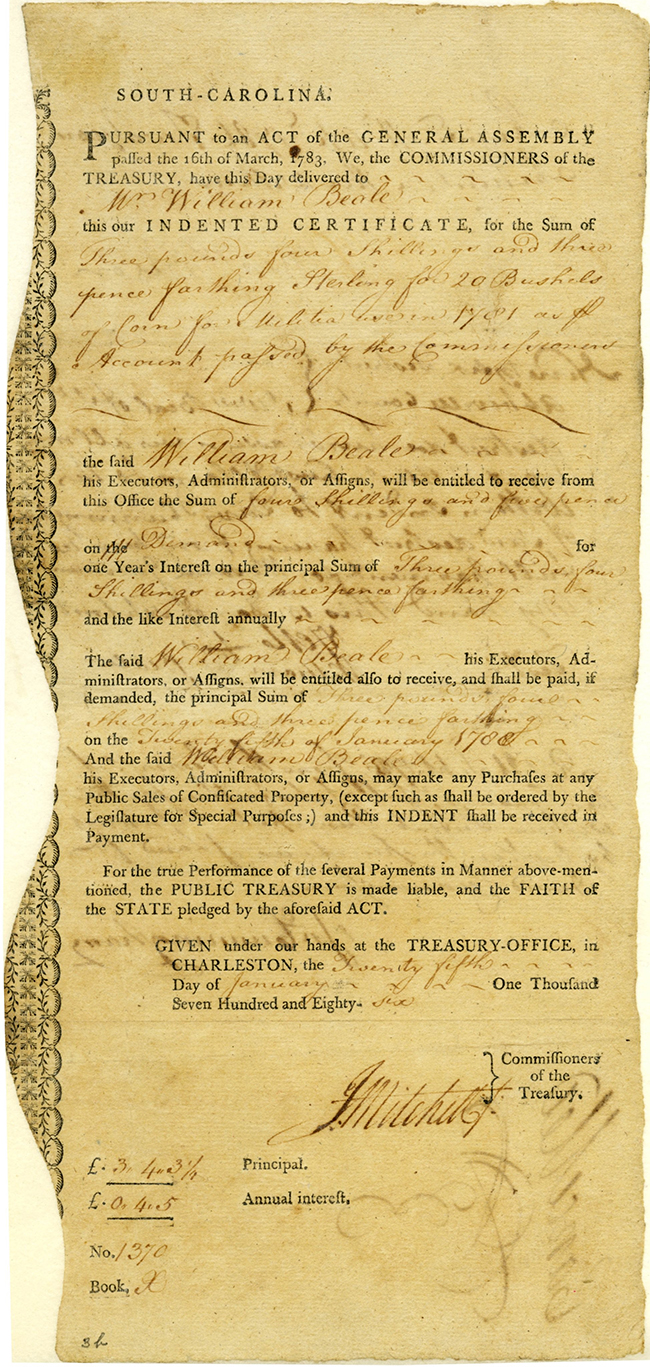 SOUTH-CAROLINA,
PURSUANT to an ACT of the GENERAL ASSEMBLY
paſſed the 16th of March, 1783, We, the COMMISSIONERS of the
TREASURY, have this Day delivered to
Mr. William Beale
this our INDENTED CERTIFICATE, for the Sum of
Three pounds four Shillings and three
pence farthing Sterling for 20 Bushels
of Corn for Militia use in 1781 as
Account paſsed by the Commiſsioners
the ſaid William Beale
his Executors, Adminiſtrators, or Aſſigns, will be entitled to receive from
this Office the Sum of four Shillings and five pence
on the Demand for
one Year's Intereſt on the principal Sum of Three pounds four
Shillings and three pence farthing
and the like Intereſt annually
The ſaid William Beale his Executors, Ad-
miniſtrators, or Aſſigns, will be entitled alſo to receive, and ſhall be paid, if
demanded, the principal Sum of Three pounds four
Shillings and three pence farthing
on the Twenty fifth of January 1788
And the ſaid William Beale
his Executors, Adminiſtrators, or Aſſigns, may make any Purchaſes at any
Public Sales of Confiſcated Property, (except ſuch as ſhall be ordered by the
Legiſlature for Special Purpoſes;) and this INDENT ſhall be received in
Payment.
For the true Performance of the ſeveral Payments in Manner above-men-
tioned, the PUBLIC TREASURY is made liable, and the FAITH of
the STATE pledged by the aforeſaid ACT.
GIVEN under our hands at the TREASURY-OFFICE, in
CHARLESTON, the Twenty fifth
Day of January One Thouſand
Seven Hundred and Eighty-six
Commiſſioners
of the
Treaſury.
J. Mitchell
£. 3 4 3 1/4 Principal.
£. 0 4 5 Annual intereſt.
No. 1370
Book, X
3h